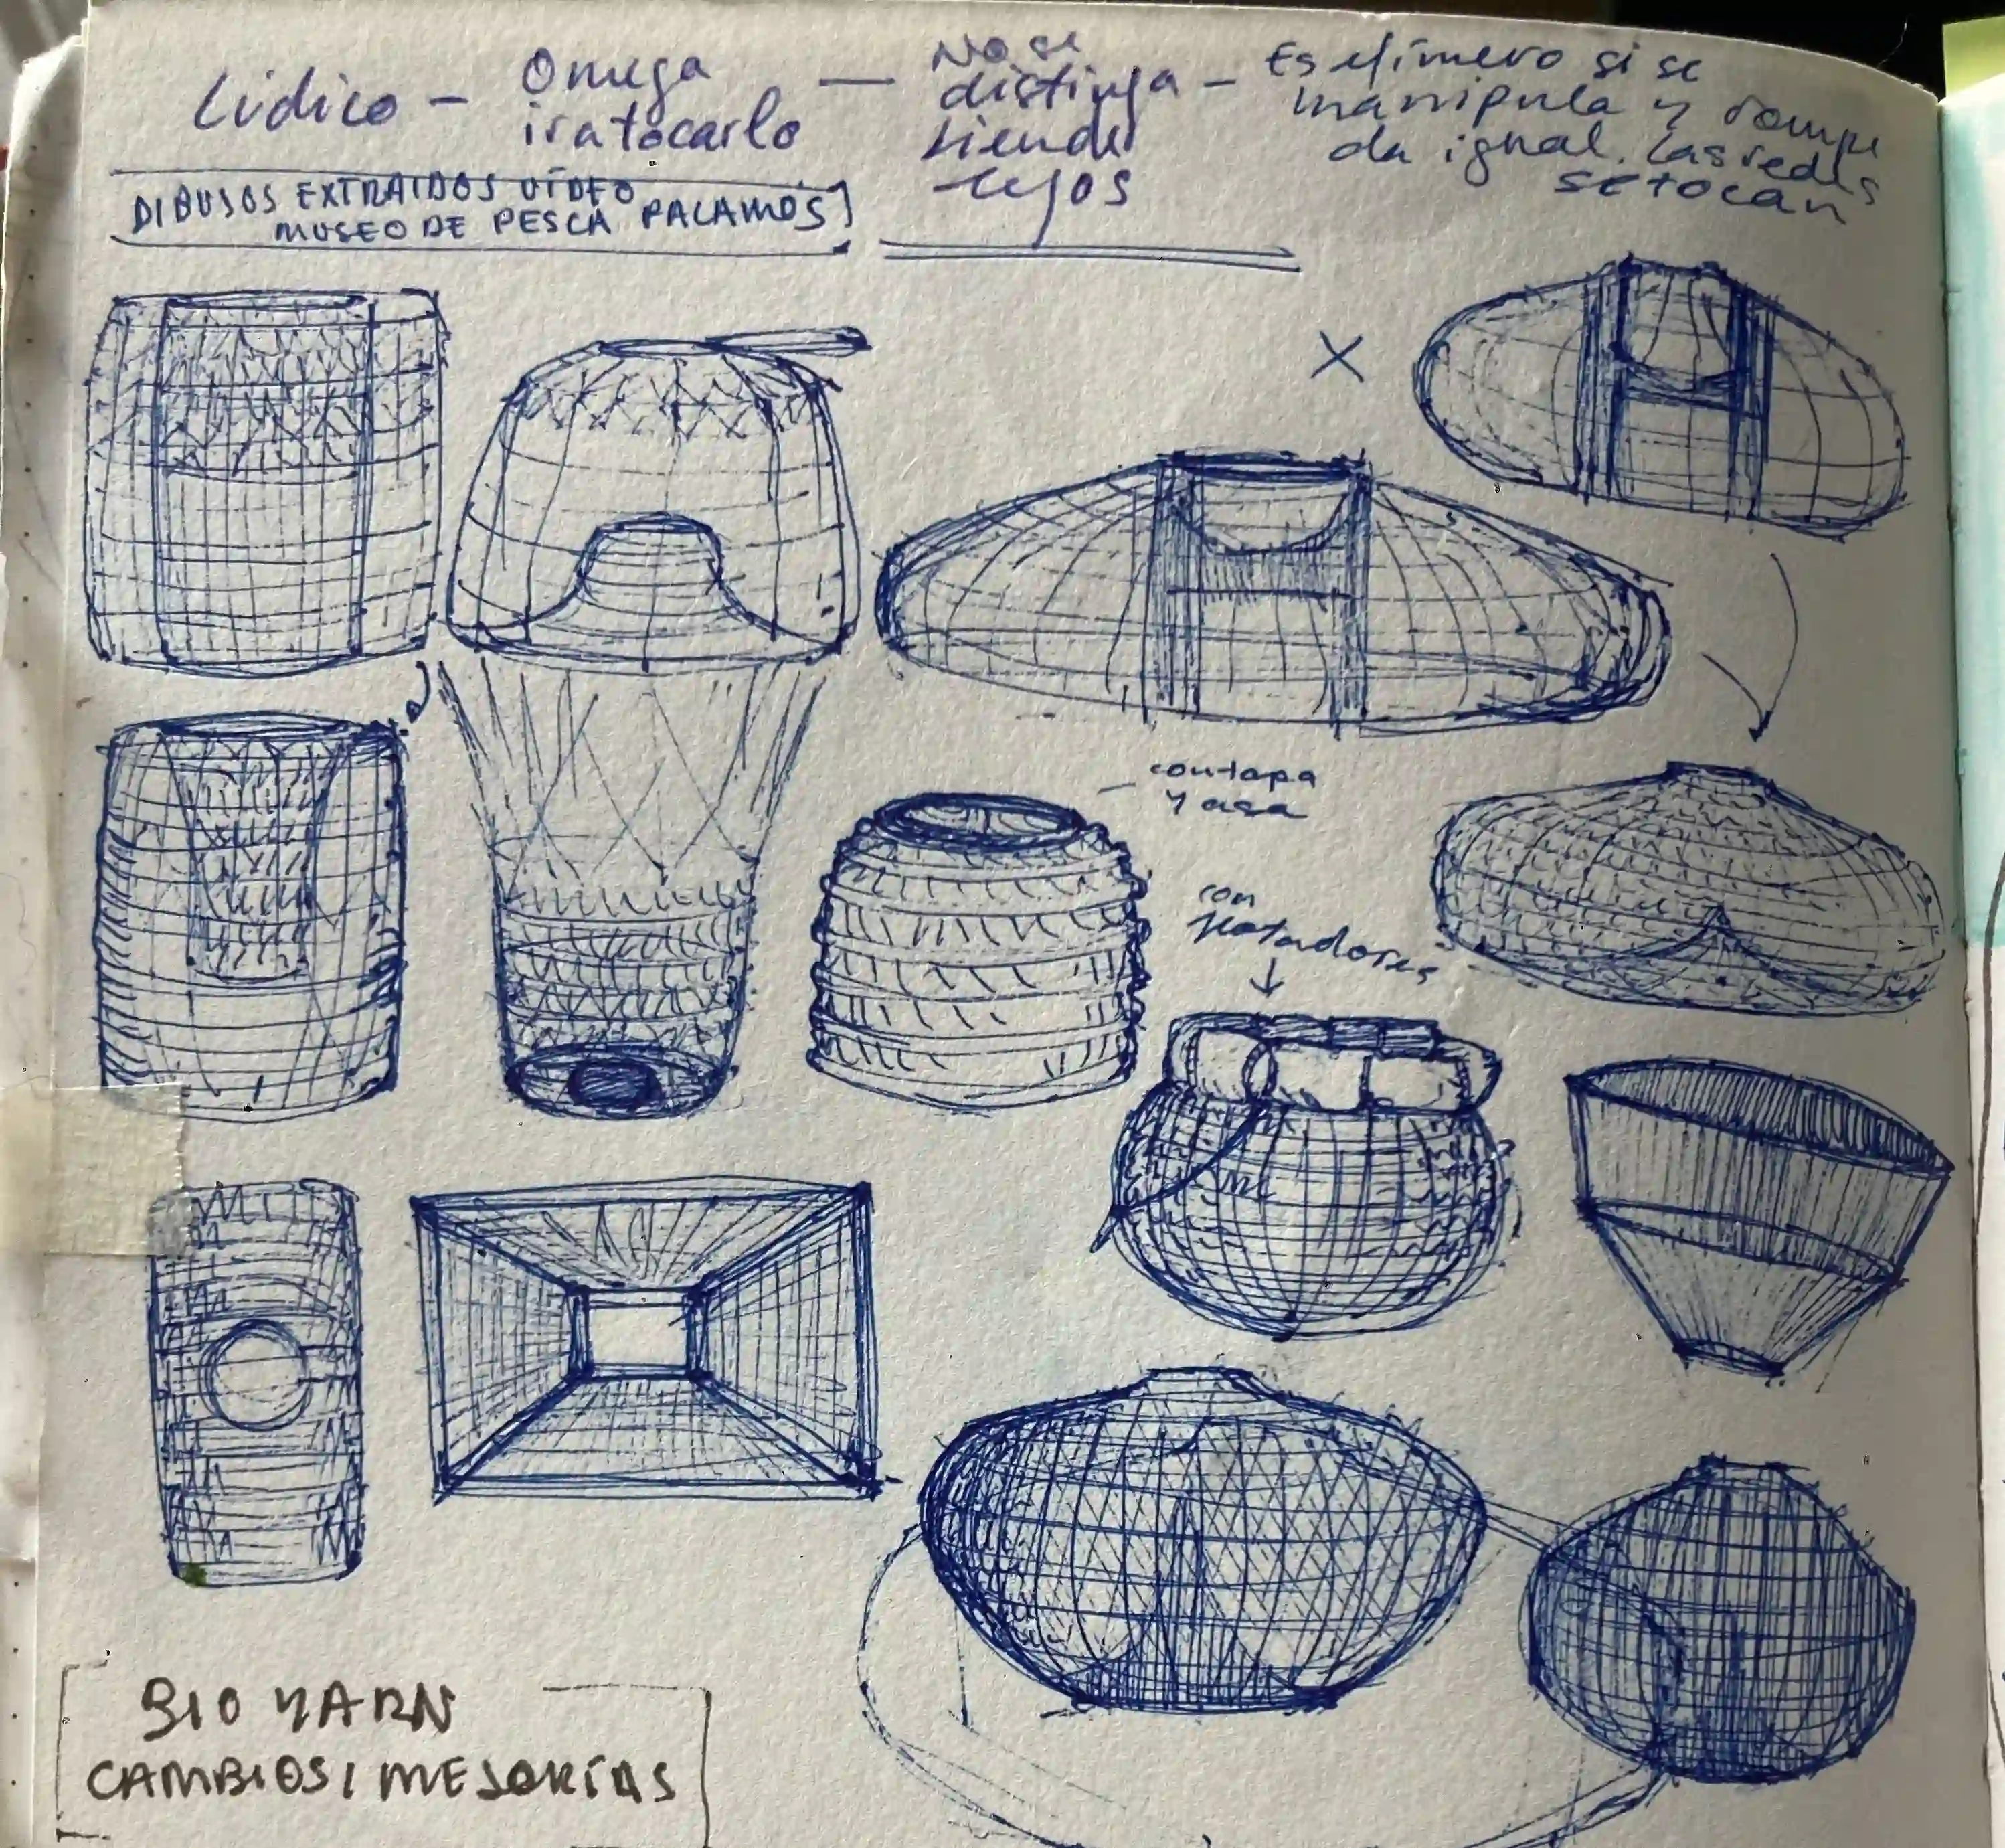 Lúdico -
Omega
ir a tocarlo
— No se
distinga -
siendo
lejos
Es efímero si se
manipula y rompe
da igual. Las redes
se tocan
DIBUJOS EXTRAIDOS VÍDEO
MUSEO DE PESCA PALAMOS
X
con tapa
y asa
con
flotadores
BIO YARN
CAMBIOS / MEJORÍAS